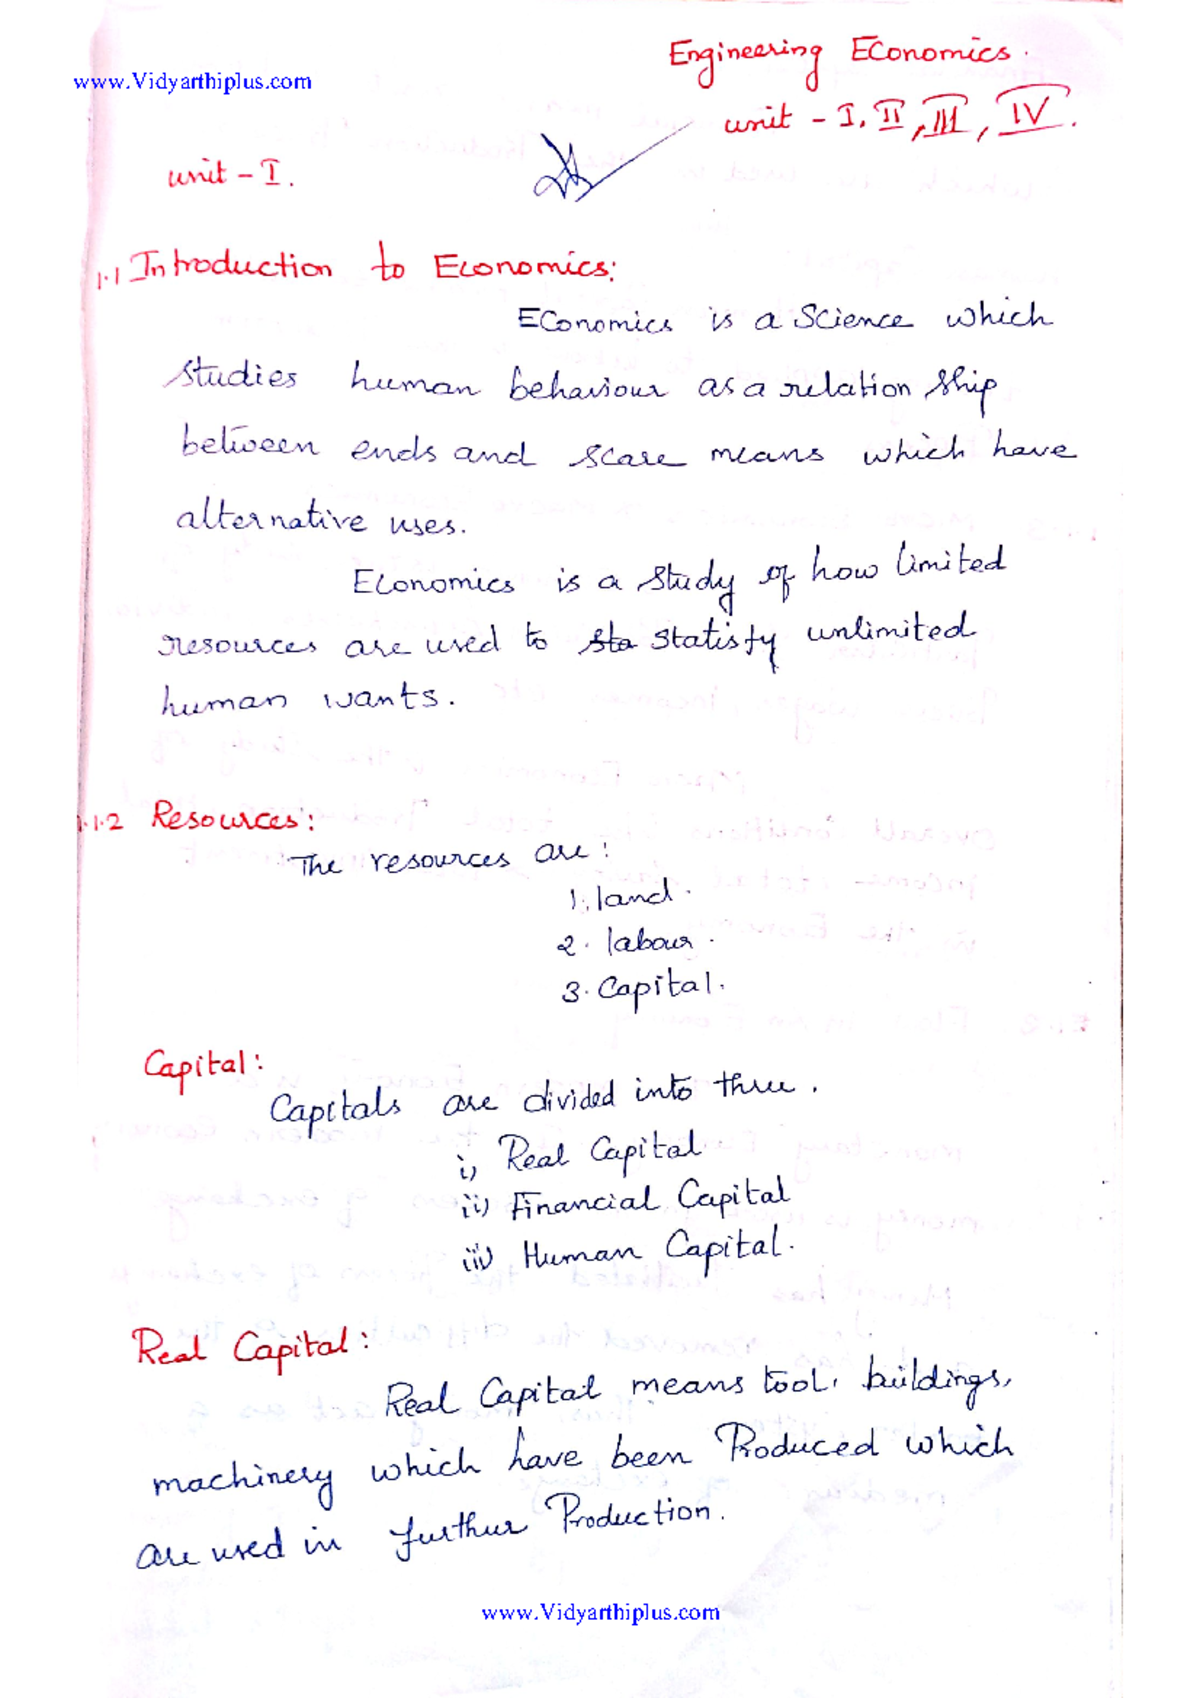 Engineering Economics.
www.Vidyarthiplus.com
unit - I, II, III, IV.
unit - I.
1.1 Introduction to Economics:
Economics is a Science which
studies human behaviour as a relation ship
between ends and scare means which have
alternative uses.
Economics is a study of how limited
resources are used to sta statisfy unlimited
human wants.
1.1.2 Resources:
The resources are:
1. land.
2. labour.
3. Capital.
Capital:
Capitals are divided into three.
i) Real Capital
ii) Financial Capital
iii) Human Capital.
Real Capital:
Real Capital means tool, buildings,
machinery which have been Produced which
are used in furthur Production.
www.Vidyarthiplus.com